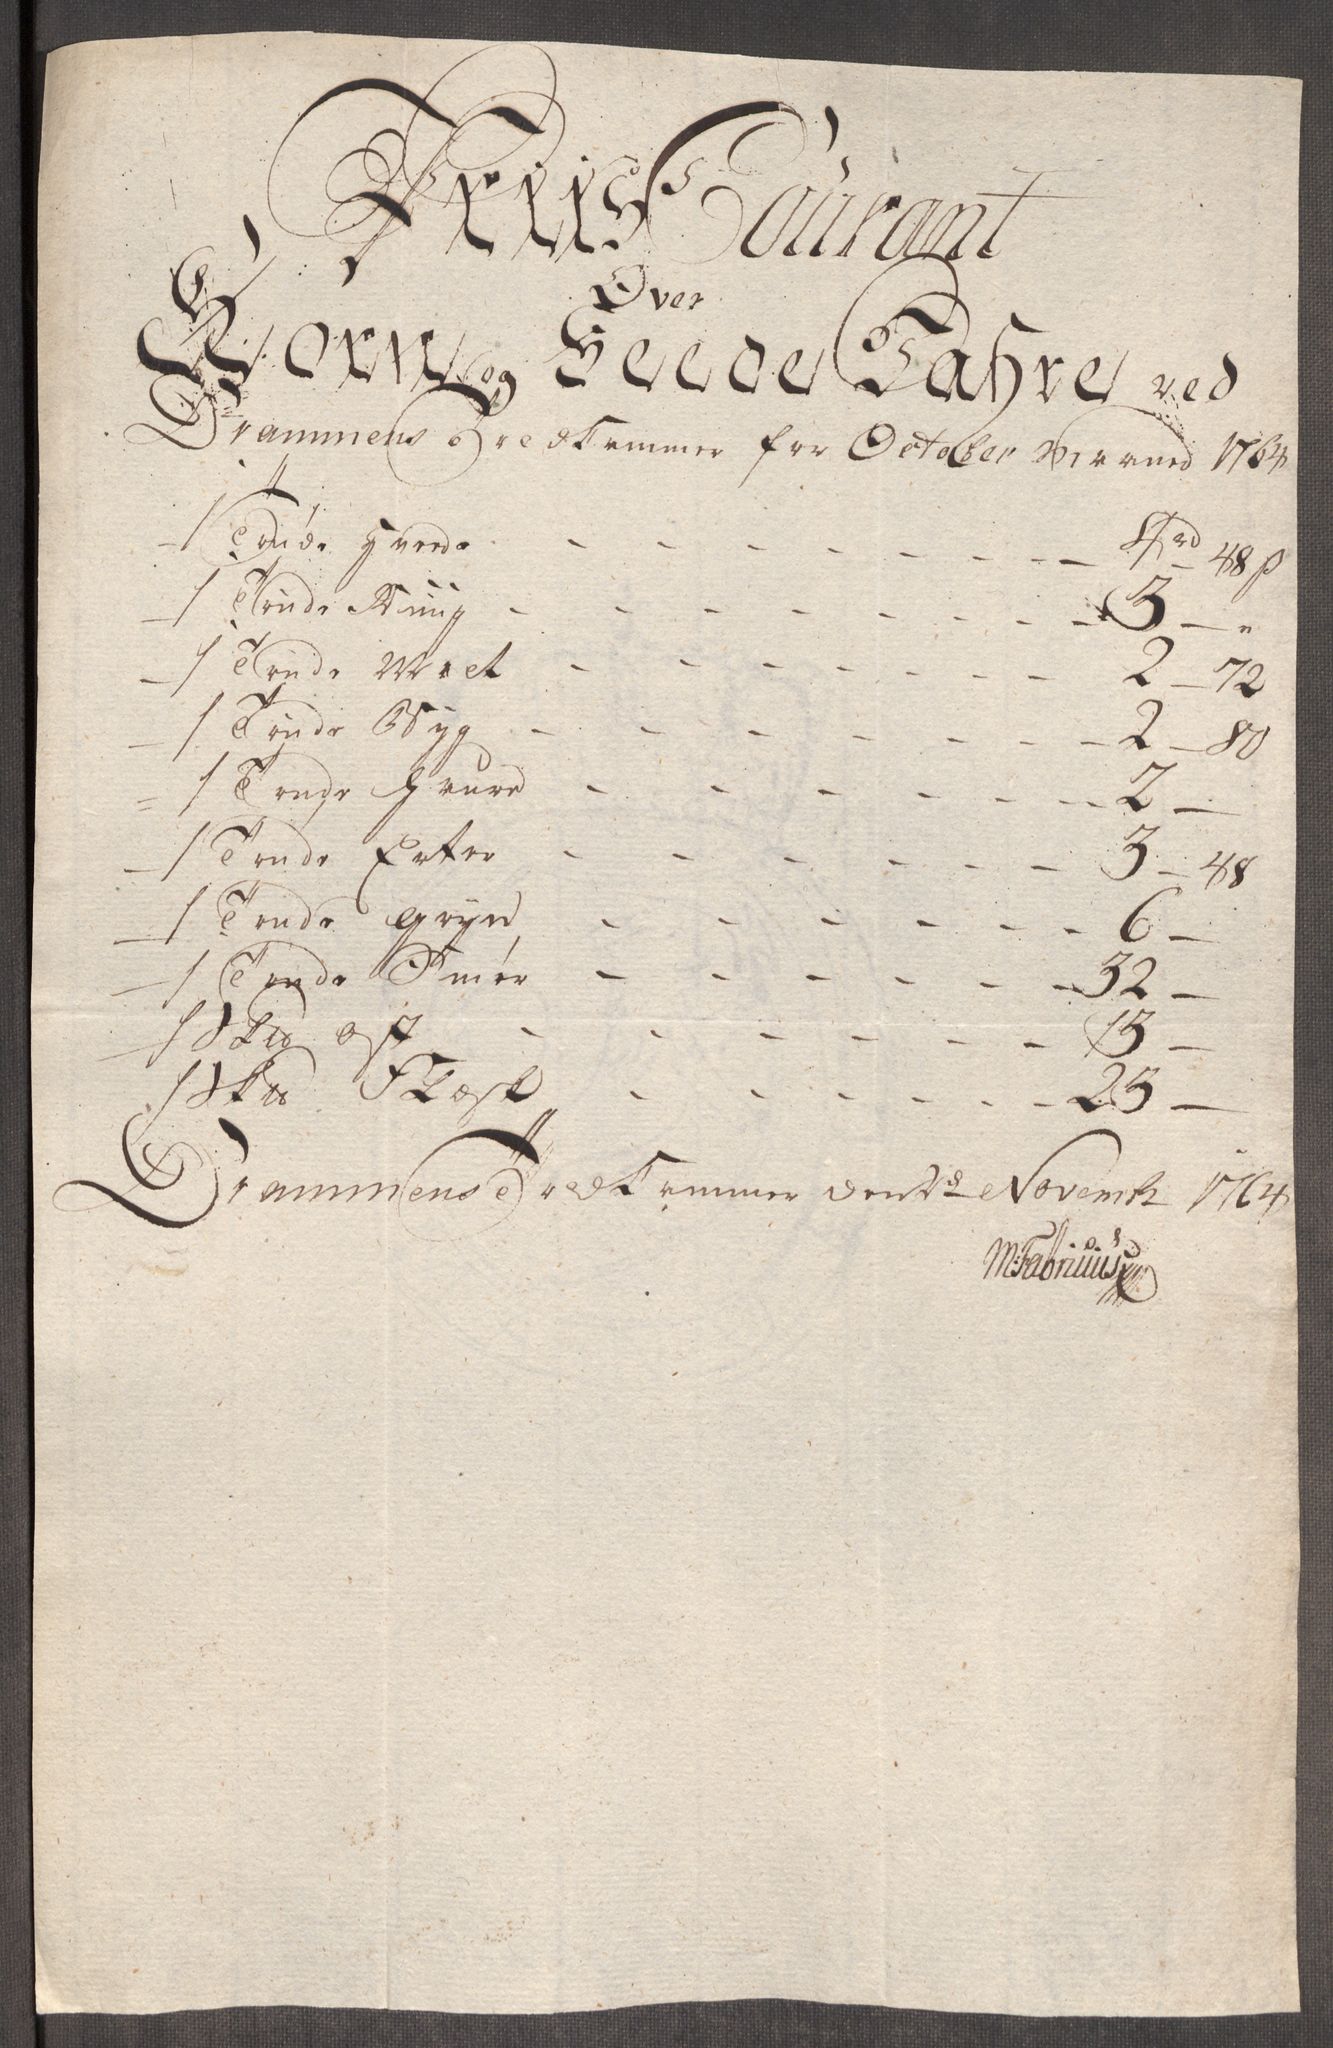 Priis Courant
Over
Korn og Feede Wahre ved
Drammens Tredkammer for October Maaned 1764
1 Tønde Hvede - - - 4 rd 48 ß
1 Tønde Rug - - - 3 — "
1 Tønde Malt - - - 2 — 72
1 Tønde Byg - - - 2 — 80
1 Tønde Havre - - - 2 —
1 Tønde Erter - - - 3 — 48
1 Tønde Gryn - - - 6 —
1 Tønde Smør - - - 32 —
1 Sk℔ Ost - - - 13 —
1 Sk℔ Flesk - - - 25 —
Drammens Tredkammer den Novemb 1764
M: Fabritius